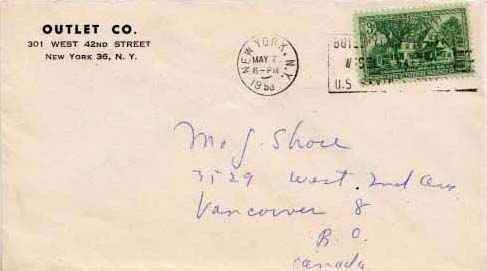 OUTLET CO.
301 WEST 42ND STREET
NEW YORK 36, N. Y.
NEW YORK, N.Y.
MAY
6-PM
3¢
U.S.
J. Shore
3529 West 2nd Ave
Vancouver 8
B.C.
Canada